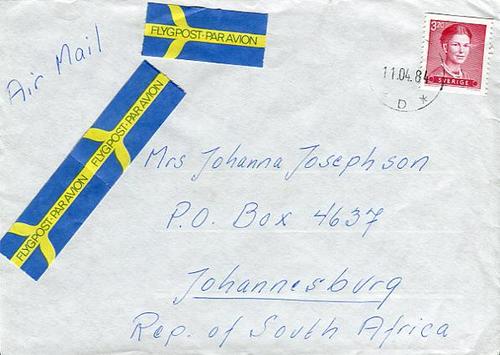 Air Mail
FLYGPOST·PAR AVION
3.20
SVERIGE
11.04.84
D *
FLYGPOST·PAR AVION
FLYGPOST·PAR AVION
Mrs Johanna Josephson
P.O. Box 4637
Johannesburg
Rep. of South Africa